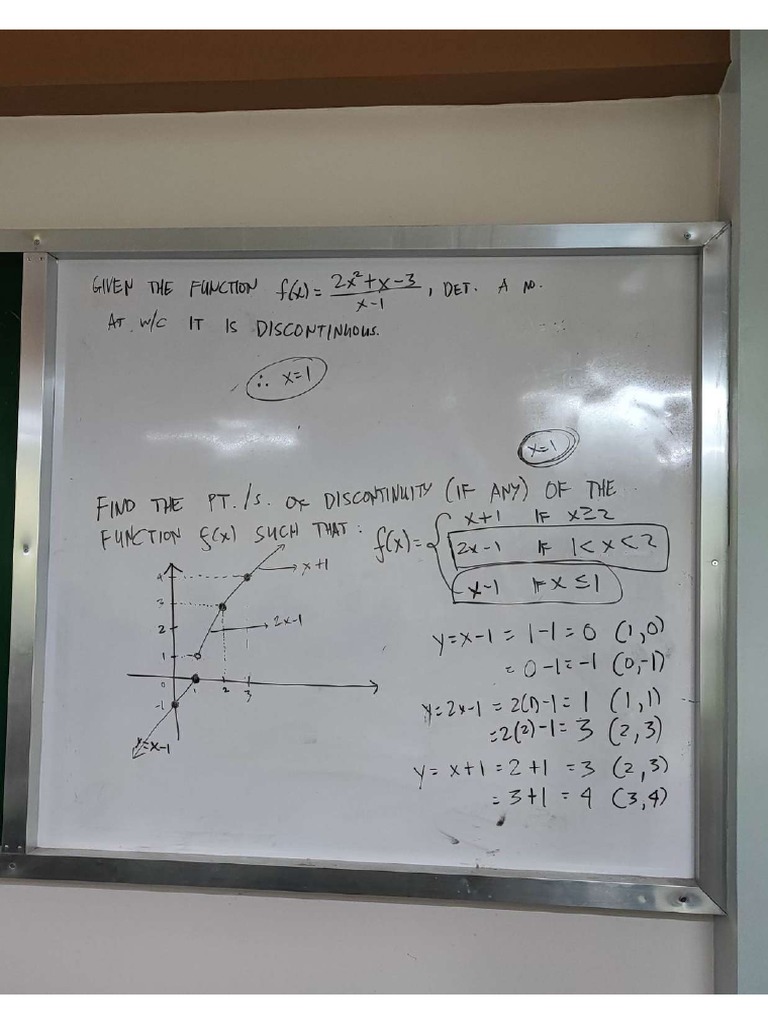 GIVEN THE FUNCTION f(x) = (2x²+x-3)/(x-1), DET. A NO.
AT W/C IT IS DISCONTINUOUS.
∴ x=1
x=1
FIND THE PT./S. OF DISCONTINUITY (IF ANY) OF THE
FUNCTION f(x) SUCH THAT: f(x) = {
x+1 IF x≥2
2x-1 IF 1<x<2
x-1 IF x≤1
4
3
2
1
0
-1
1 2 3
x+1
2x-1
y=x-1
y=x-1 = 1-1=0 (1,0)
= 0-1=-1 (0,-1)
y=2x-1 = 2(1)-1=1 (1,1)
=2(2)-1=3 (2,3)
y= x+1 = 2+1 =3 (2,3)
= 3+1 = 4 (3,4)